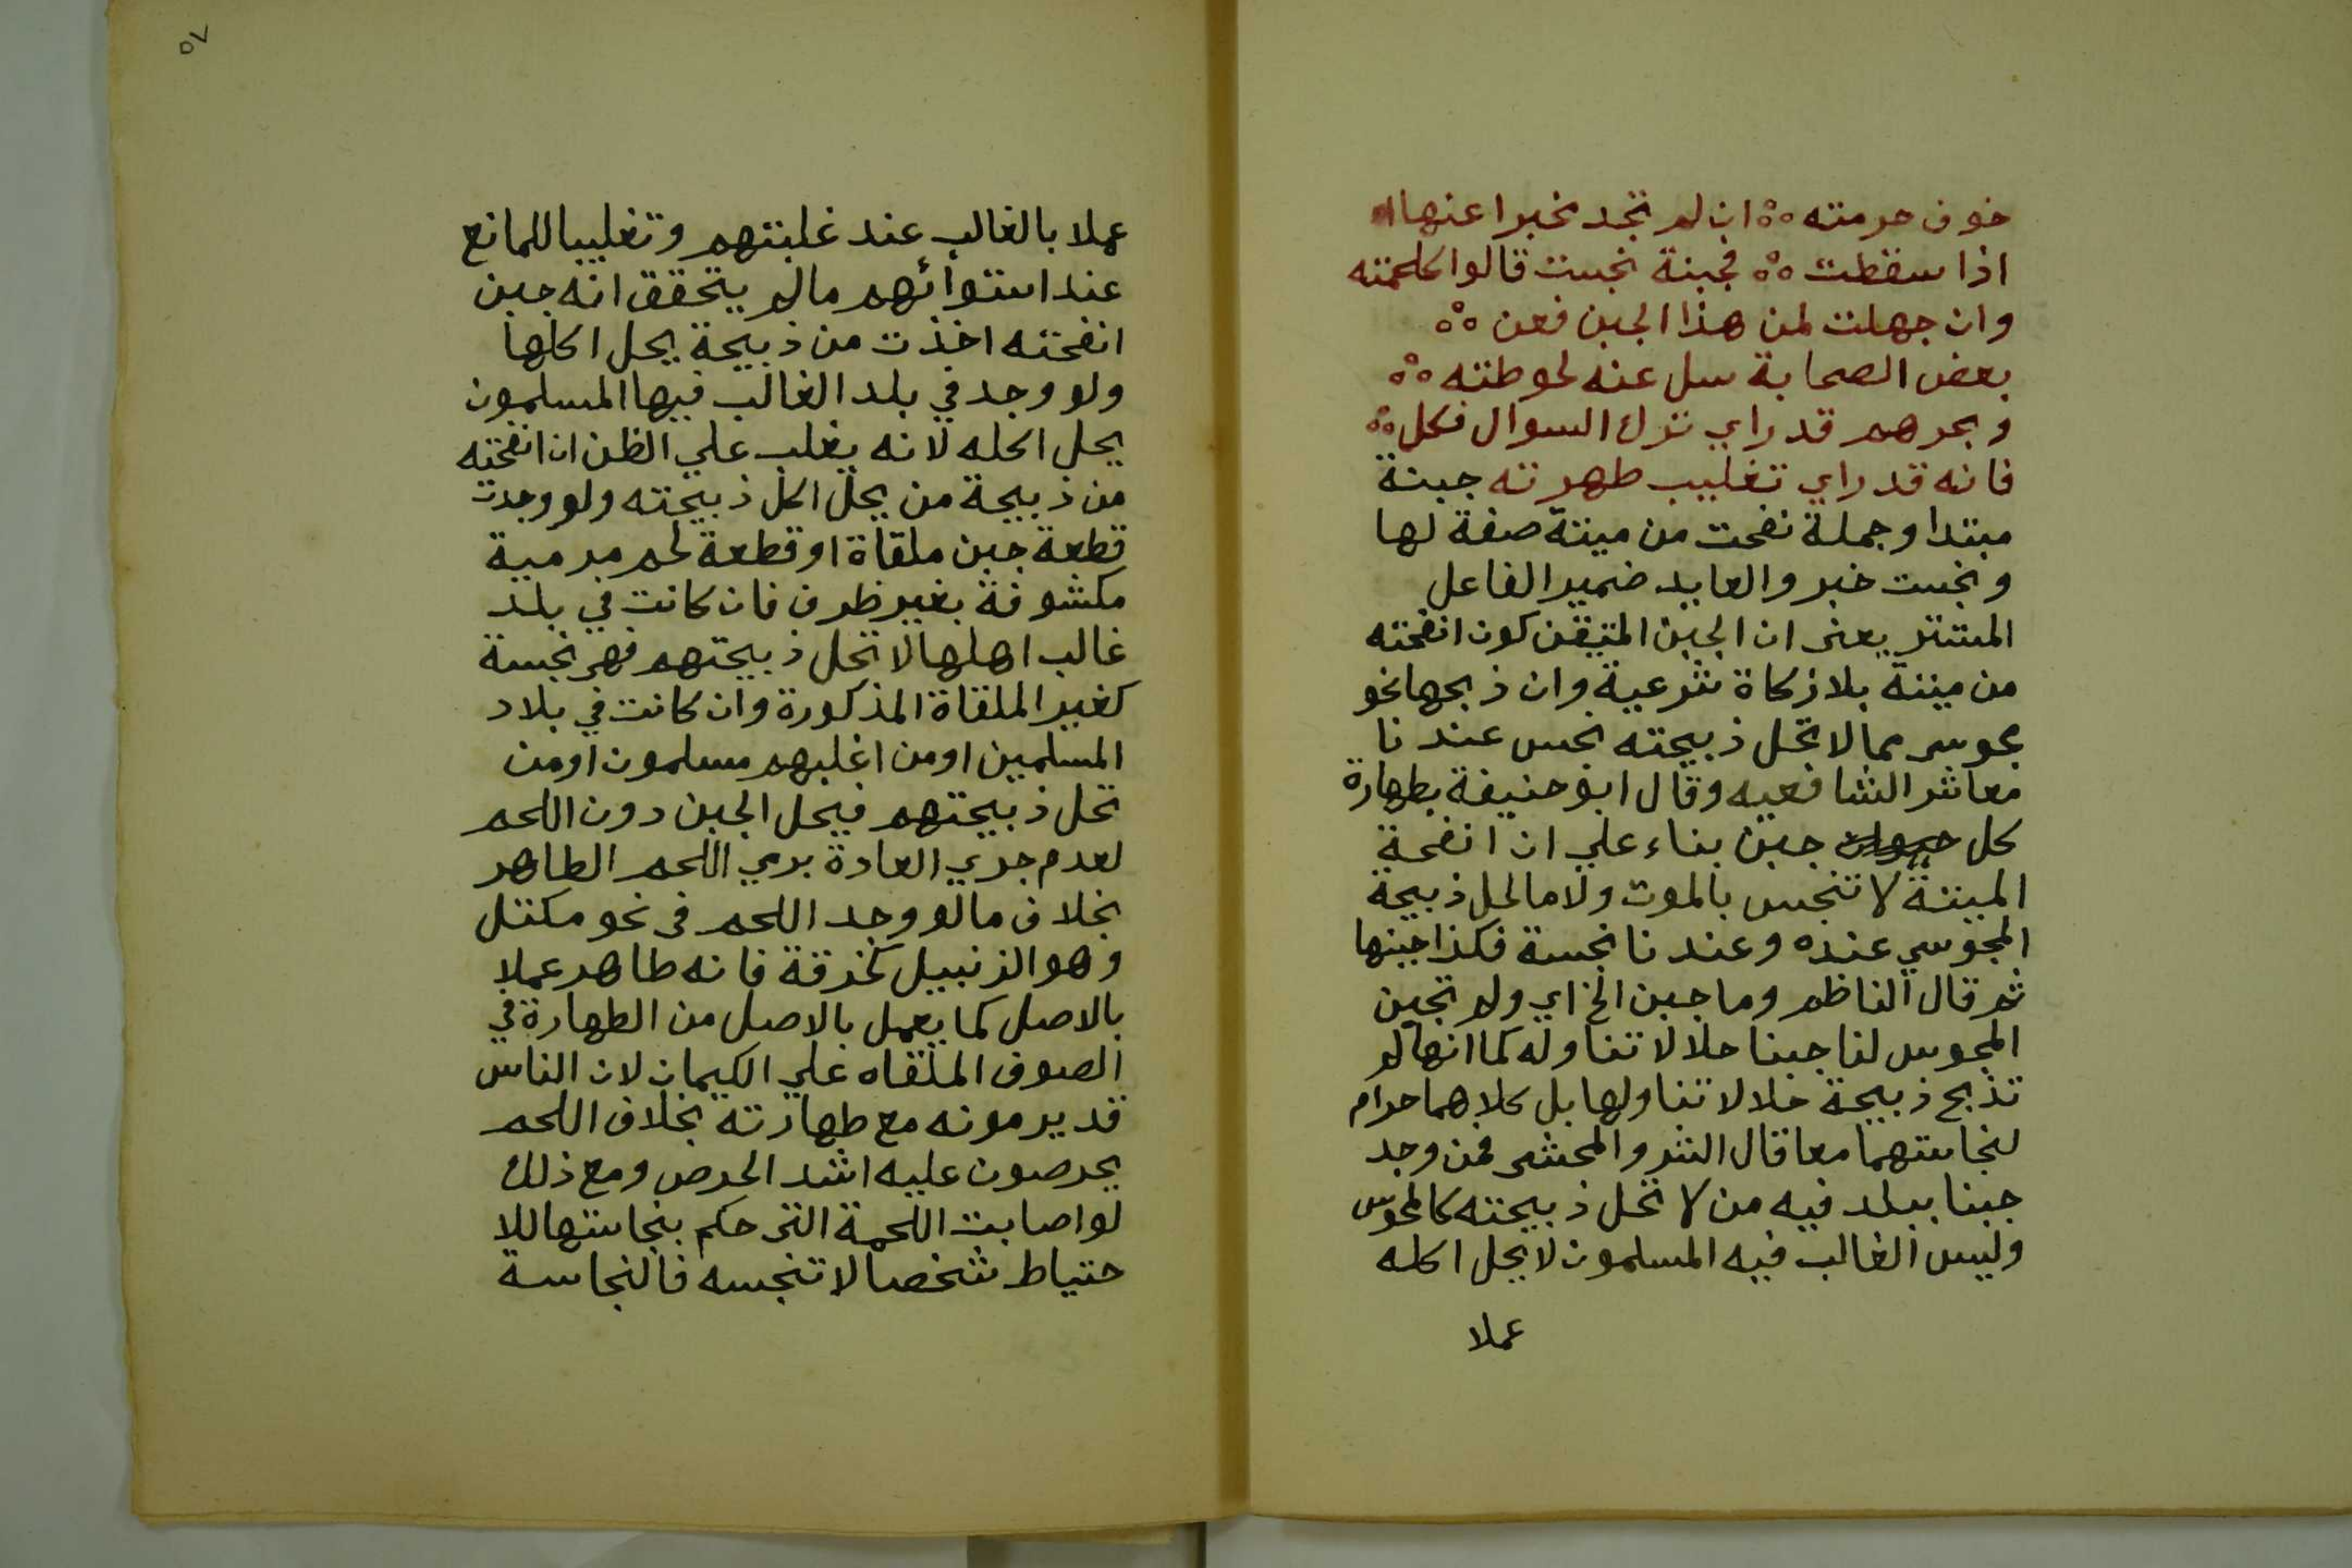 خوف حرمته ؞ ان لم تجد مخبرا عنها
اذا سقطت ؞ فجبنة نجست قالوا كلحمته
وان جهلت لمن هذا الجبن فعن ؞
بعض الصحابة سل عنه لحوطته ؞
وبحرهم قد راي ترك السوال فكل ؞
فانه قد راي تغليب طهرته جبنة
مبتدا وجملة نفحت من ميتة صفة لها
ونجست خبر والعايد ضمير الفاعل
المستتر يعني ان الجبن المتيقن كون انفحته
من ميتة بلا زكاة شرعية وان ذبحها نحو
مجوسي مما لا تحل ذبيحته نجس عندنا
معاشر الشافعيه وقال ابو حنيفة بطهارة
كل جبن بناء علي ان انفحة
الميتة لا تنجس بالموت ولا مالحل ذبيحة
المجوسي عنده وعندنا نجسة فكذا جبنها
ثم قال الناظم وما جبن الخ اي ولم تجبن
المجوس لنا جبنا حلالا تناوله كما انها لو
تذبح ذبيحة حلالا تناولها بل كلاهما حرام
لنجاستهما معا قال الشر والمحشي فمن وجد
جبنا ببلد فيه من لا تحل ذبيحته كالمجوس
وليس الغالب فيه المسلمون لا يحل اكله
عملا
٥٧
عملا بالغالب عند غلبتهم وتغليبا للمانع
عند استوائهم مالم يتحقق انه جبن
انفحته اخذت من ذبيحة يحل اكلها
ولو وجد في بلد الغالب فيها المسلمون
يحل اكله لانه يغلب علي الظن ان انفحته
من ذبيحة من يحل اكل ذبيحته ولو وجدت
قطعة جبن ملقاة او قطعة لحم مرمية
مكشوفة بغير ظرف فان كانت في بلد
غالب اهلها لا تحل ذبيحتهم فهي نجسة
كغير الملقاة المذكورة وان كانت في بلاد
المسلمين او من اغلبهم مسلمون او من
تحل ذبيحتهم فيحل الجبن دون اللحم
لعدم جري العادة برمي اللحم الطاهر
بخلاف مالو وجد اللحم في نحو مكتل
وهو الزنبيل كخرقة فانه طاهر عملا
بالاصل كما يعمل بالاصل من الطهارة في
الصوف الملقاه علي الكيمان لان الناس
قد يرمونه مع طهارته بخلاف اللحم
يحرصون عليه اشد الحرص ومع ذلك
لو اصابت اللحمة التي حكم بنجاستها للا
حتياط شخصا لا تنجسه فالنجاسة